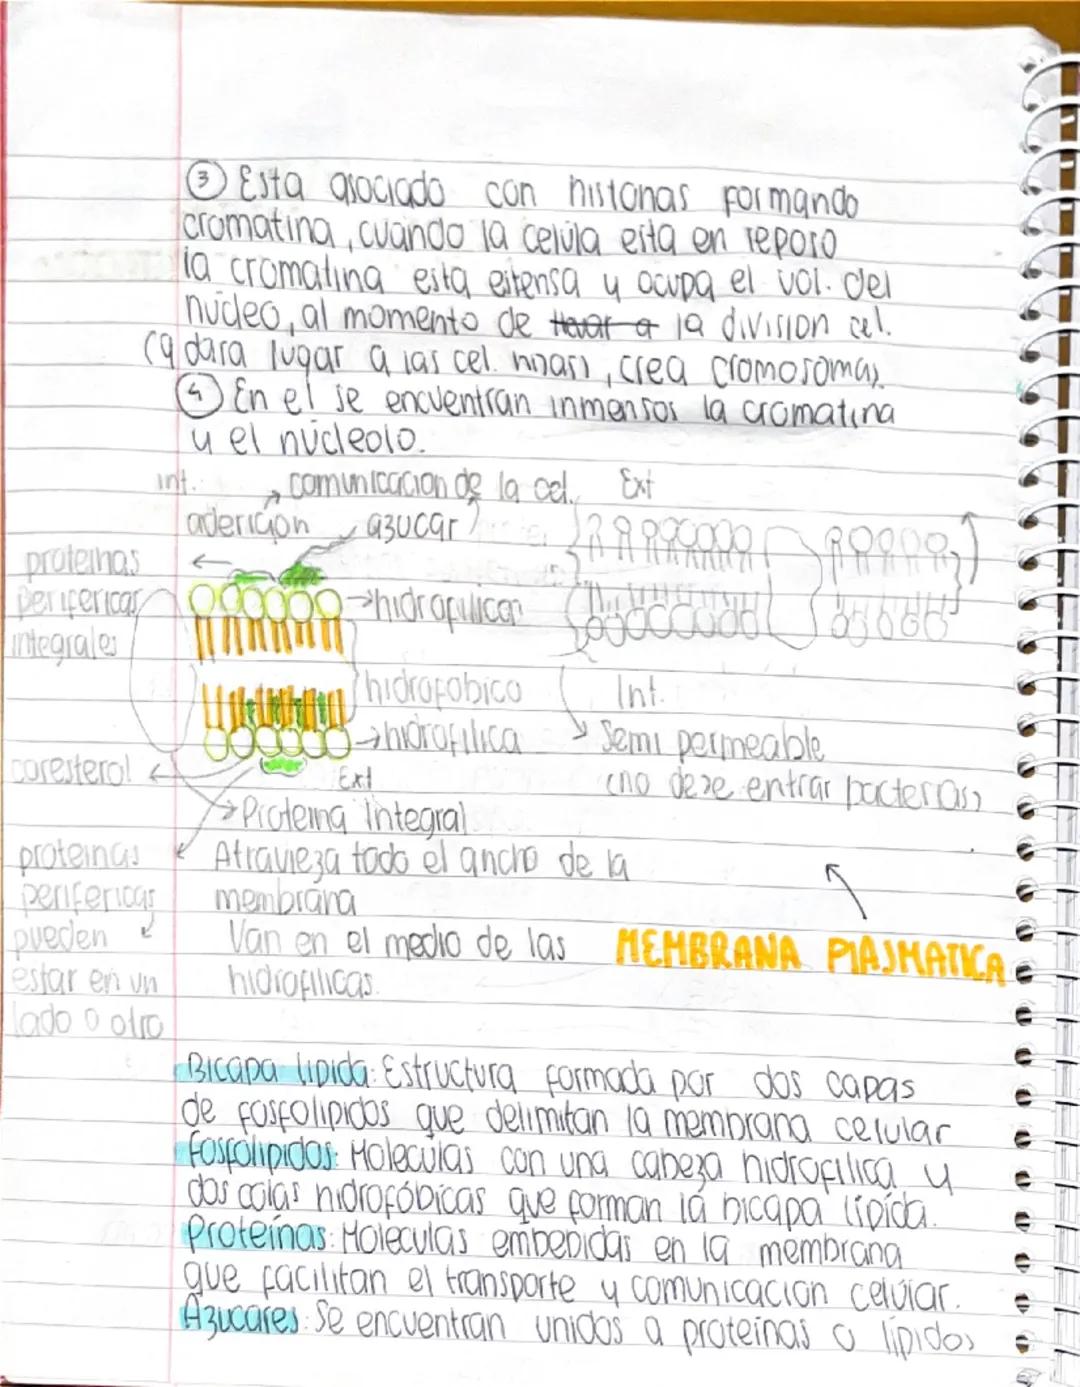 ③ Esta asociado con histonas formando
cromatina, cuando la celula esta en reposo
la cromatina esta estensa y ocupa el vol. del
núcleo, al momento de la division cel.
(q dara lugar a las cel. hijas), crea cromosomas.
④ En el se encuentran inmensos la cromatina
y el núcleolo.
int. comunicacion de la cel. Ext
adericion azucar
proteinas
perifericas hidrofilicas
integrales
hidrofobico Int.
hidrofilica Semi permeable
coresterol Ext (no deje entrar bacterias)
Proteina integral
proteinas Atravieza todo el ancho de la
perifericas membrana
pueden Van en el medio de las MEMBRANA PLASMATICA
estar en un hidrofilicas.
lado o otro
Bicapa lipida: Estructura formada por dos capas
de fosfolipidos que delimitan la membrana celular
Fosfolipidos: Moleculas con una cabeza hidrofilica y
dos colas hidrofóbicas que forman la bicapa lípida.
Proteínas: Moleculas embebidas en la membrana
que facilitan el transporte y comunicacion celular.
Azucares: Se encuentran unidos a proteínas o lípidos